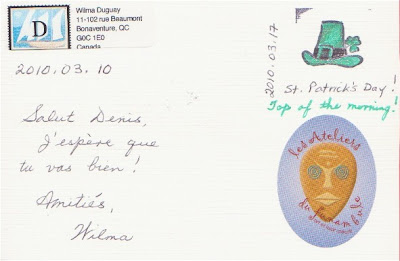 D
Wilma Duguay
11-102 rue Beaumont
Bonaventure, QC
G0C 1E0
Canada
2010.03.10
Salut Denis,
J'espère que
tu vas bien !
Amitiés,
Wilma
2010.03.17
St. Patrick's Day !
Top of the morning !
Les Ateliers
du funambule